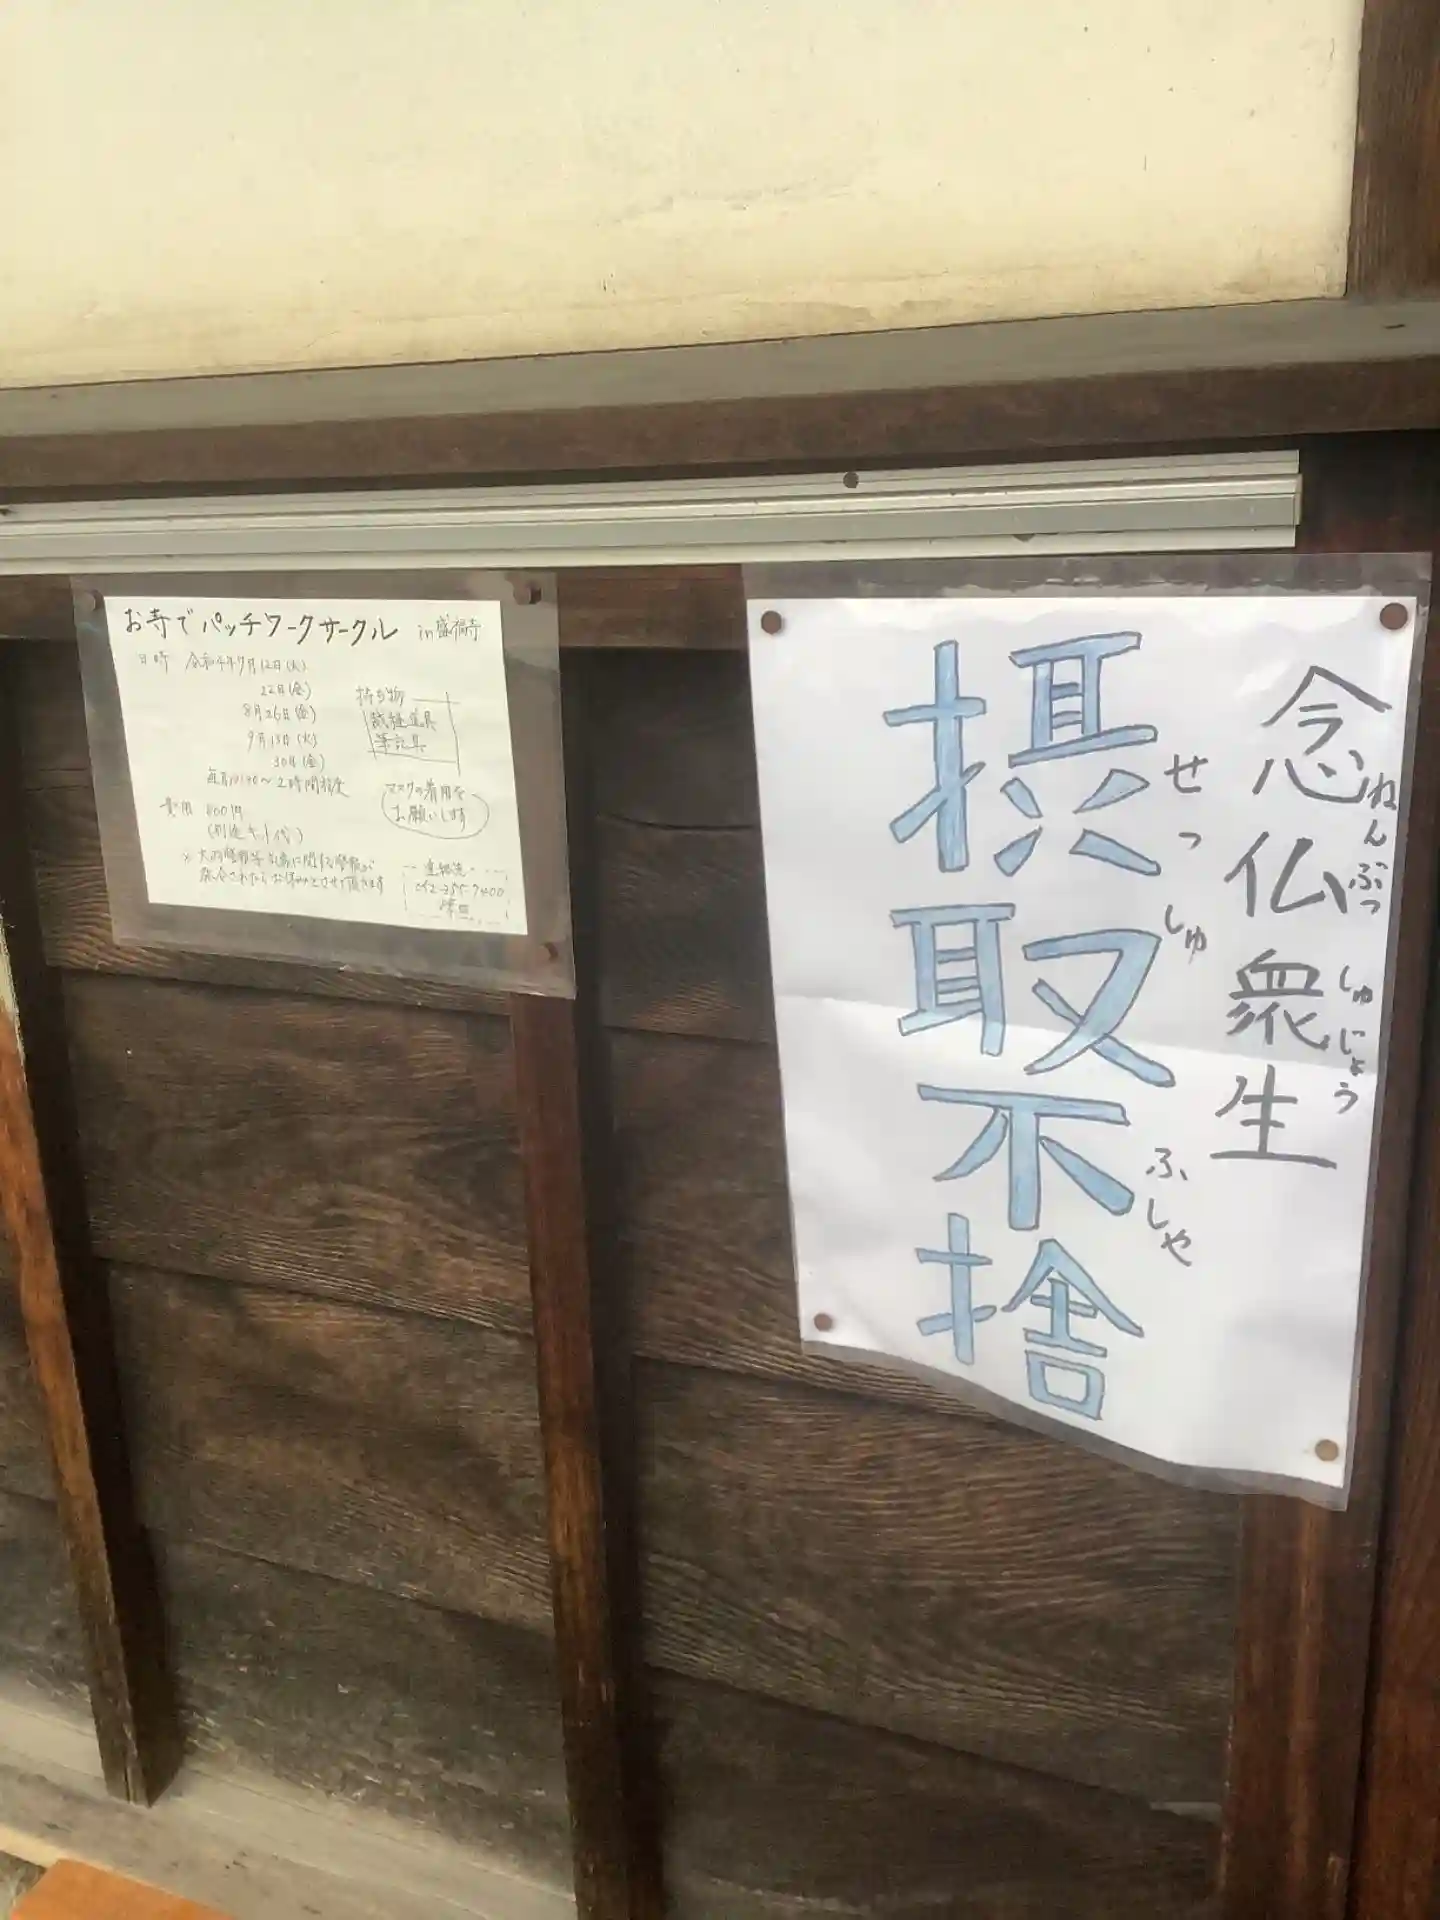 お寺でパッチワークサークル in盛福寺
日時 令和4年7月12日(火)
22日(金)
8月26日(金)
9月13日(火)
30日(金)
2時間程度
費用 800円
(別途キット代)
持ち物
裁縫道具
筆記具
マスクの着用を
お願いします
発令されたらお休みとさせて頂きます
連絡先
念仏衆生
ねんぶつしゅじょう
摂取不捨
せっしゅふしゃ